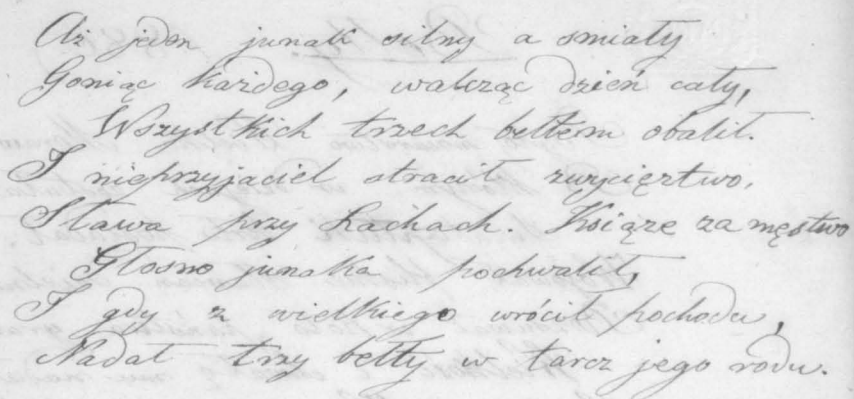 Aż jeden junak silny a smiały
Goniąc każdego, walcząc dzień cały,
Wszystkich trzech bełtem obalił.
I nieprzyjaciel stracił zwycięztwo,
Sława przy Lachach. Książe za męstwo
Głosno junaka pochwalił,
I gdy z wielkiego wrócił pochodu,
Nadał trzy bełty w tarcz jego rodu.